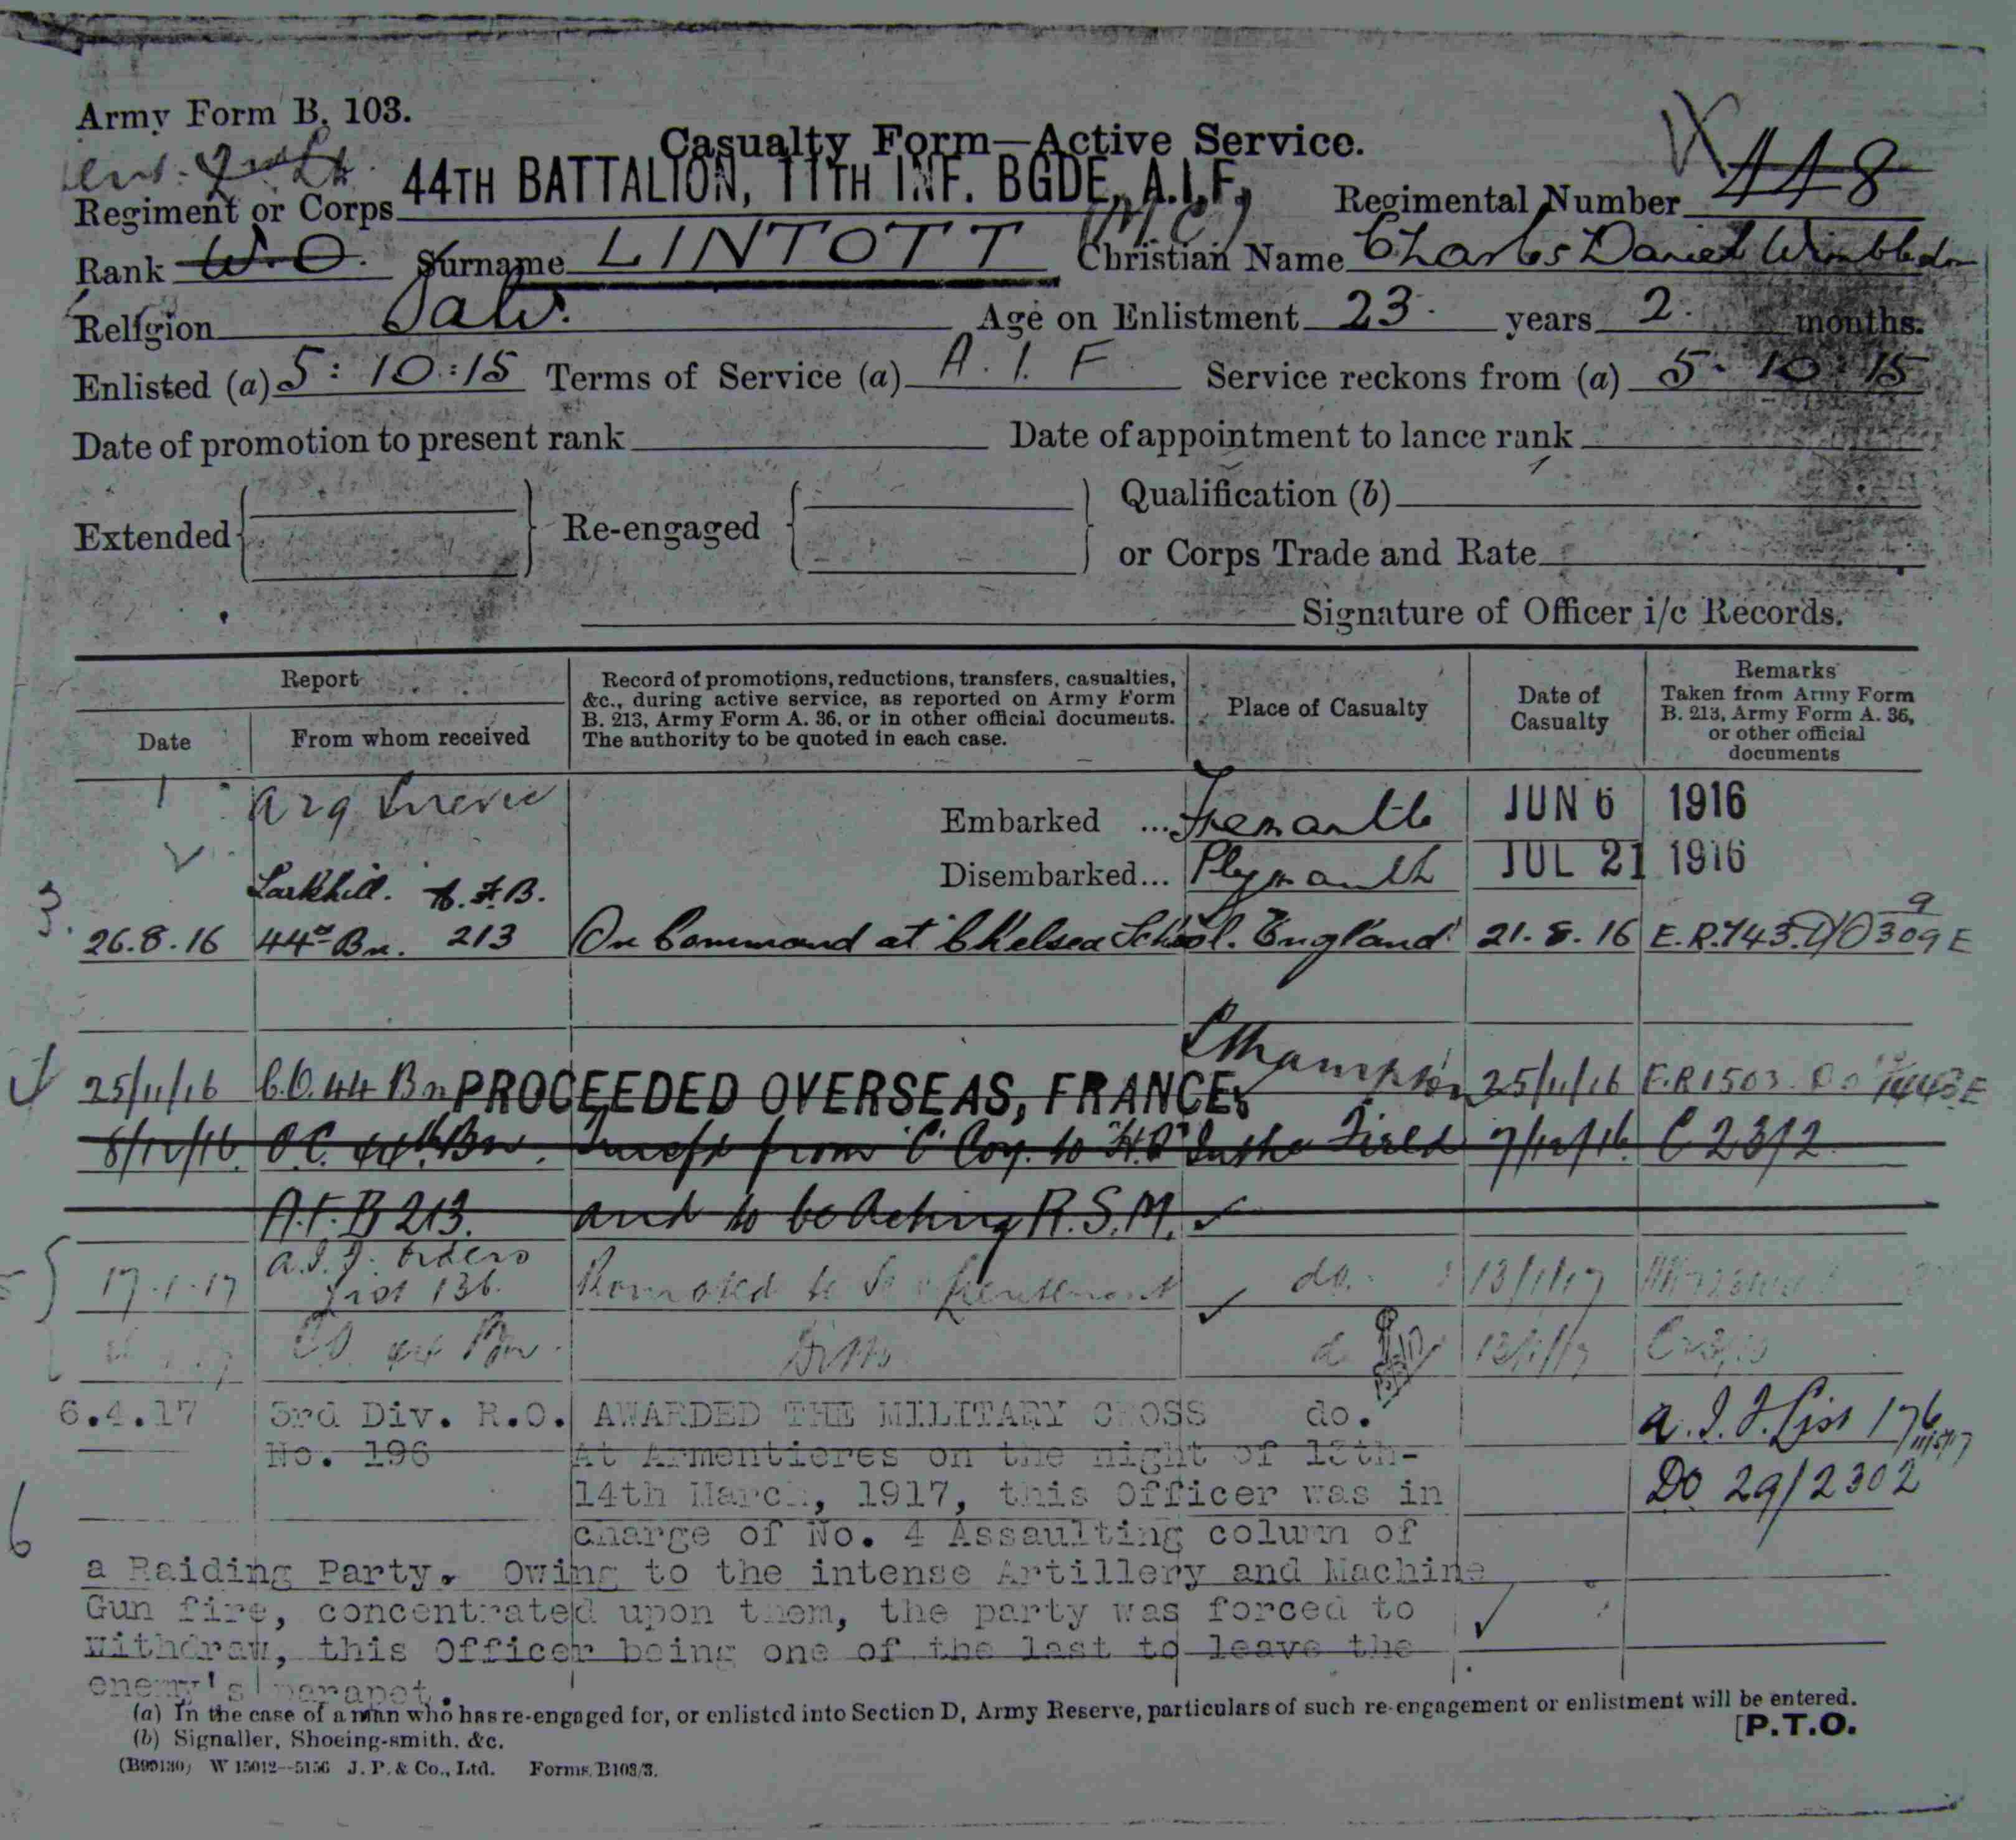 Army Form B. 103.
Casualty Form—Active Service.
Regiment or Corps 44TH BATTALION, 11TH INF. BGDE, A.I.F. Regimental Number 448
(M.C.)
Rank W.O. Surname LINTOTT Christian Name Charles Daniel Wimbledon
Religion Salv. Age on Enlistment 23 years 2 months.
Enlisted (a) 5:10:15 Terms of Service (a) A.I.F Service reckons from (a) 5.10.15
Date of promotion to present rank Date of appointment to lance rank
Extended Re-engaged Qualification (b)
or Corps Trade and Rate
Signature of Officer i/c Records.
Report
Date
From whom received
Record of promotions, reductions, transfers, casualties,
&c., during active service, as reported on Army Form
B. 213, Army Form A. 36, or in other official documents.
The authority to be quoted in each case.
Place of Casualty
Date of
Casualty
Remarks
Taken from Army Form
B. 213, Army Form A. 36,
or other official
documents
Embarked ... Fremantle JUN 6 1916
Disembarked... Plymouth JUL 21 1916
Larkhill. A.F.B.
26.8.16 44th Bn. 213 On Command at Chelsea School. England 21.8.16 E.R.743. DO 309 E
25/11/16 C.O. 44 Bn PROCEEDED OVERSEAS, FRANCE. S'hampton 25/11/16 E.R 1503
8/12/16. O.C. 44th Bn. Transfr from "C" Coy. to "H.Q" In the Field 7/12/16. C 23/2
A.F. B 213. and to be Acting R.S.M.
17.1.17 A.I.F. Orders
List 136. Promoted to 2nd Lieutenant do. 13/1/17
CO 44 Bn. Ditto 13/1/17
6.4.17 3rd Div. R.O. AWARDED THE MILITARY CROSS do. A.I.F. List 176
No. 196 At Armentieres on the night of 13th-
14th March, 1917, this Officer was in DO 29/2302
charge of No. 4 Assaulting column of
a Raiding Party. Owing to the intense Artillery and Machine
Gun fire, concentrated upon them, the party was forced to
withdraw, this Officer being one of the last to leave the
enemy's parapet.
(a) In the case of a man who has re-engaged for, or enlisted into Section D, Army Reserve, particulars of such re-engagement or enlistment will be entered.
[P.T.O.
(b) Signaller, Shoeing-smith, &c.
(B99130) W 15012—5156 J. P. & Co., Ltd. Forms B103/3.